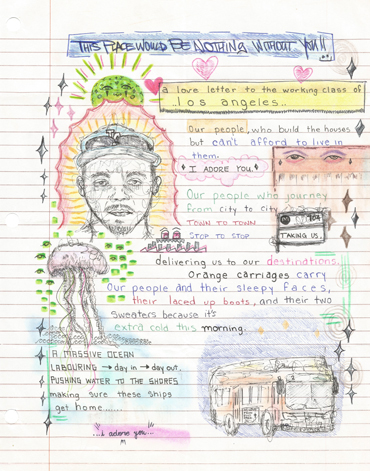 THIS PLACE WOULD BE NOTHING WITHOUT YOU!!
a love letter to the working class of
..los angeles..
Our people, who build the houses
but can't afford to live in
them.
I ADORE YOU.
Our people who journey
from city to city
TOWN to TOWN
STOP to STOP
704
TAKING US.
delivering us to our destinations.
Orange carriages carry
Our people and their sleepy faces,
their laced up boots, and their two
sweaters because it's
extra cold this morning.
A MASSIVE OCEAN
LABOURING → day in → day out.
PUSHING WATER to THE SHORES
making sure these ships
get home.......
..i adore you..